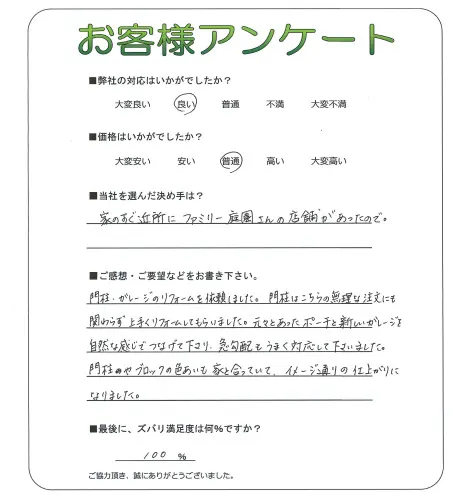 お客様アンケート
■弊社の対応はいかがでしたか？
大変良い 良い 普通 不満 大変不満
■価格はいかがでしたか？
大変安い 安い 普通 高い 大変高い
■当社を選んだ決め手は？
家のすぐ近所に ファミリー庭園さんの店舗があったので。
■ご感想・ご要望などをお書き下さい。
門柱・ガレージのリフォームを依頼しました。門柱はこちらの無理な注文にも
関わらず上手くリフォームしてもらいました。元々とあったポーチと新しいガレージを
自然な感じでつなげて下さり、急勾配もうまく対応して下さいました。
門柱やブロックの色あいも家と合っていて、イメージ通りの仕上がりに
なりました。
■最後に、ズバリ満足度は何％ですか？
100 %
ご協力頂き、誠にありがとうございました。